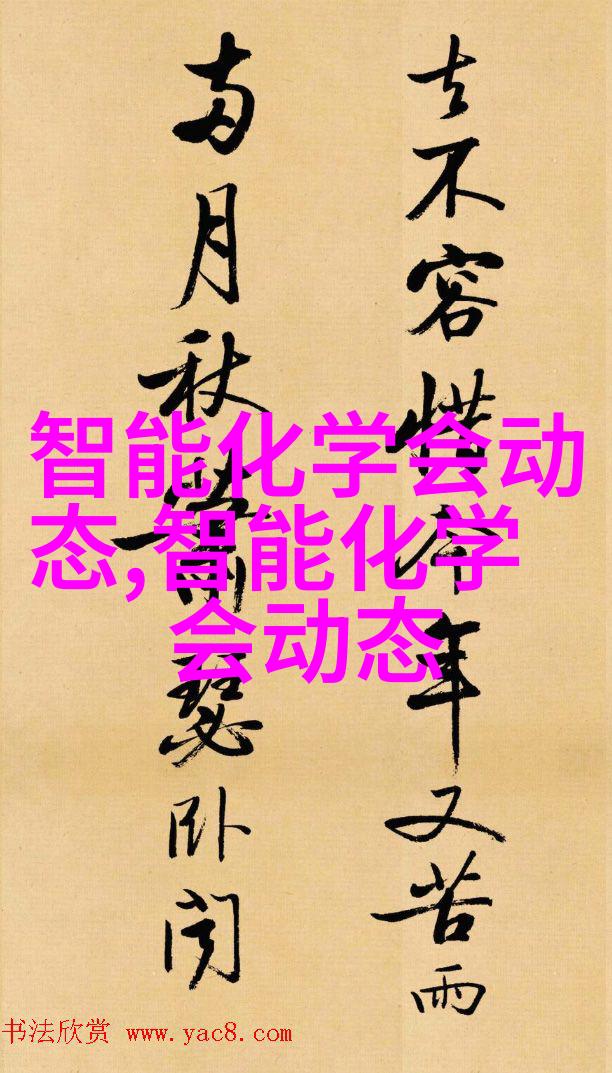 去不容惜今年又苦雨
两月秋萧瑟卧闻
智能化学会动
态,智能化学
会动态
书法欣赏 www.yac8.com